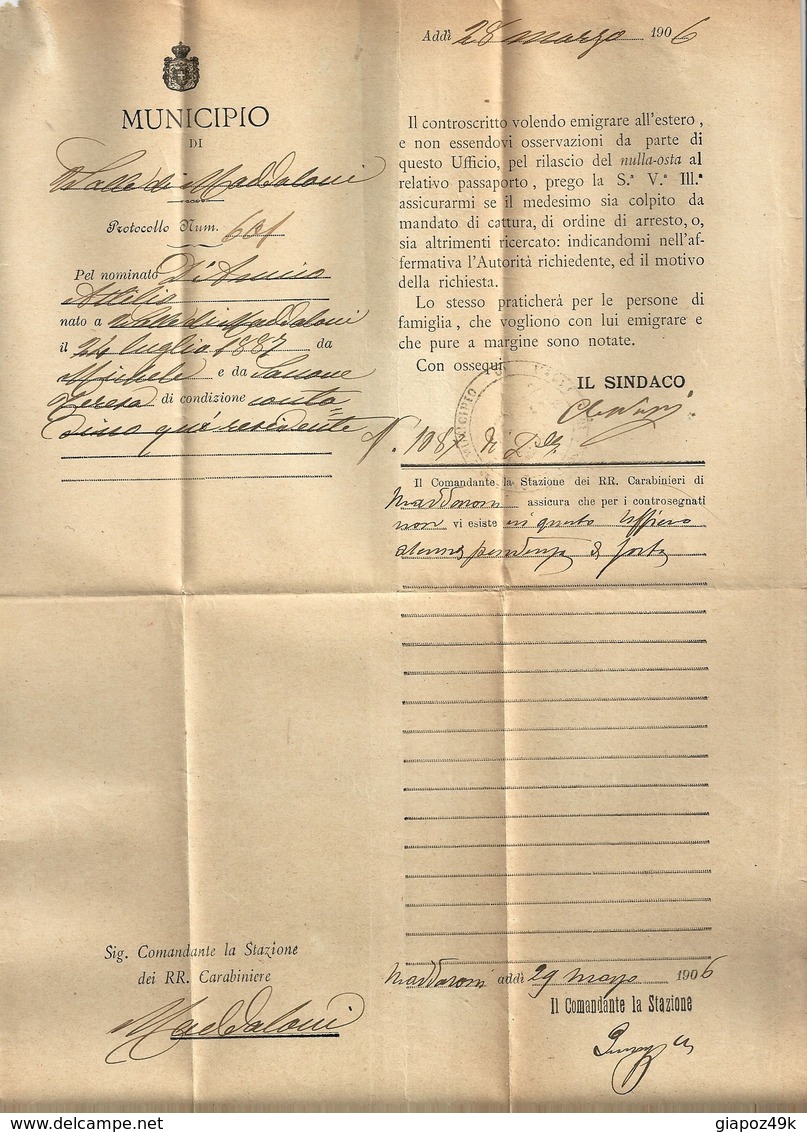 MUNICIPIO
DI
Valle di Maddaloni
Protocollo Num. 601
Pel nominato D'Amico
Attilio
nato a Valle di Maddaloni
il 24 luglio 1887 da
Michele e da
Teresa di condizione conta=
dino qui residente
Sig. Comandante la Stazione
dei RR. Carabiniere
Maddaloni
Addì 28 marzo 1906
Il controscritto volendo emigrare all'estero,
e non essendovi osservazioni da parte di
questo Ufficio, pel rilascio del nulla-osta al
relativo passaporto, prego la S.ª V.ª Ill.ª
assicurarmi se il medesimo sia colpito da
mandato di cattura, di ordine di arresto, o,
sia altrimenti ricercato: indicandomi nell'af-
fermativa l'Autorità richiedente, ed il motivo
della richiesta.
Lo stesso praticherà per le persone di
famiglia, che vogliono con lui emigrare e
che pure a margine sono notate.
Con ossequi
IL SINDACO
MUNICIPIO
N. 108
Il Comandante la Stazione dei RR. Carabinieri di
Maddaloni assicura che per i controsegnati
non vi esiste in questo Ufficio
alcuna pendenza di sorta
Maddaloni addì 29 marzo 1906
Il Comandante la Stazione
giapoz49k